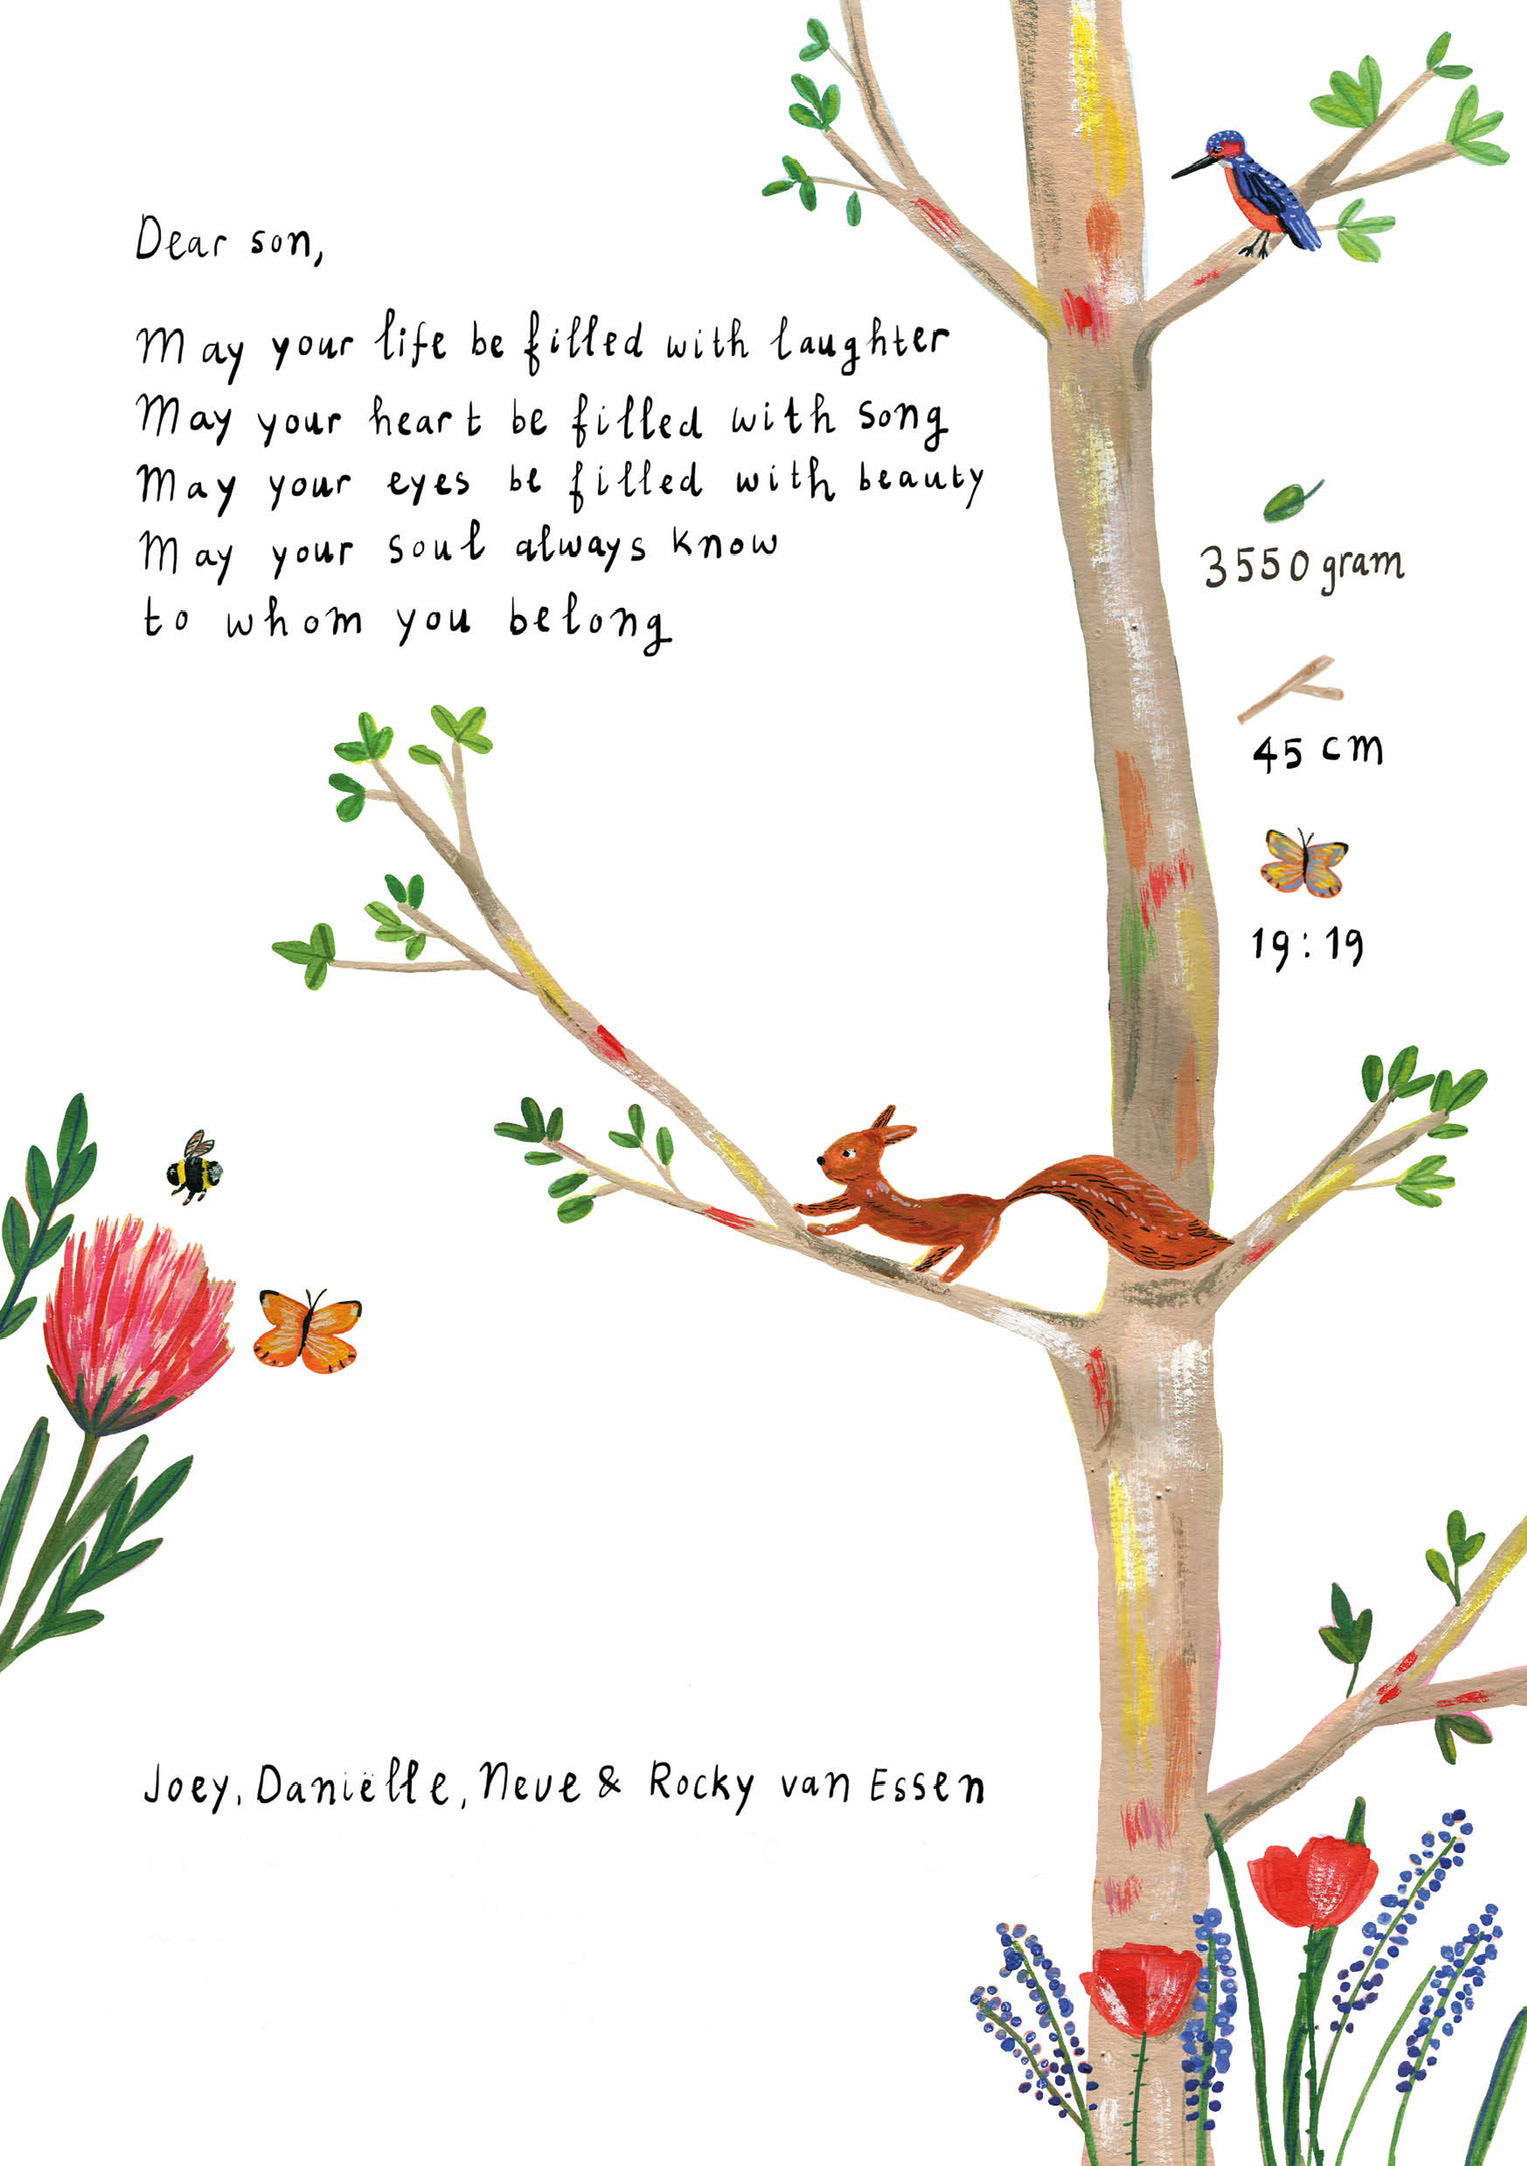 Dear son,
May your life be filled with laughter
May your heart be filled with song
May your eyes be filled with beauty
May your soul always know
to whom you belong
3550 gram
45 cm
19:19
Joey, Daniëlle, Neve & Rocky van Essen